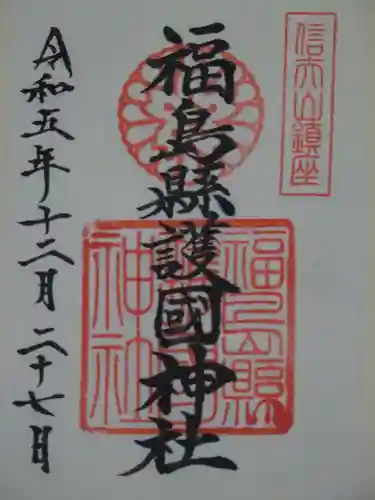 信夫山鎮座
福島縣護國神社
福島縣
神社
令和五年十二月二十七日